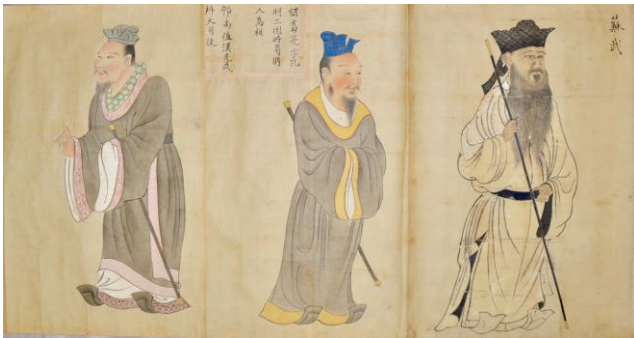 蘇武
諸葛亮字孔
明三国時蜀將
人為相
鄧禹後漢光武
拜大司徒